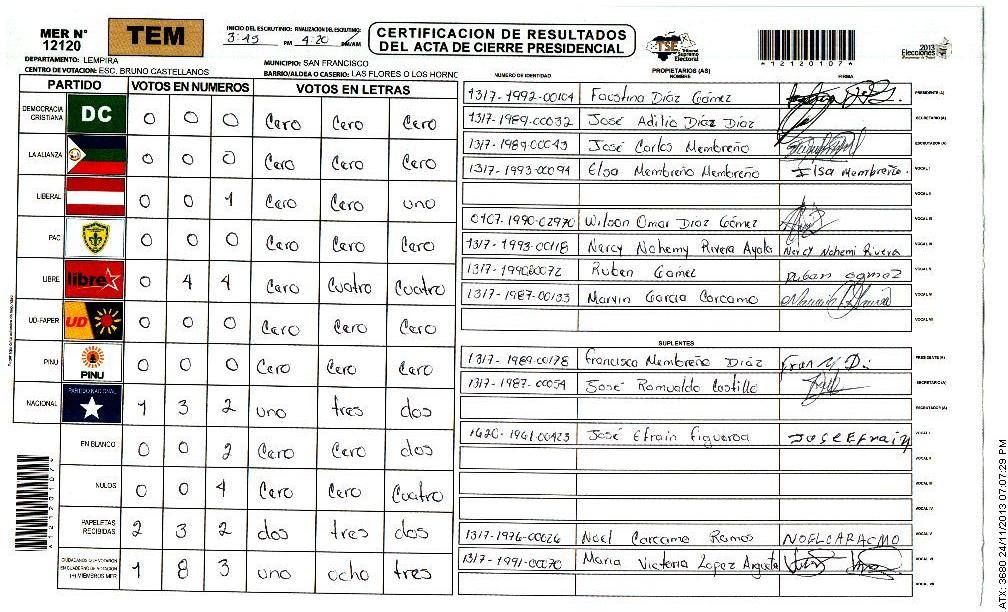 MER N° 12120
TEM
INICIO DEL ESCRUTINIO: FINALIZACIÓN DEL ESCRUTINIO:
3:45 PM 4:20 PM/AM
CERTIFICACION DE RESULTADOS
DEL ACTA DE CIERRE PRESIDENCIAL
TSE Tribunal Supremo Electoral
*12120107*
2013 Elecciones
DEPARTAMENTO: LEMPIRA
MUNICIPIO: SAN FRANCISCO
CENTRO DE VOTACION: ESC. BRUNO CASTELLANOS
BARRIO/ALDEA O CASERIO: LAS FLORES O LOS HORNO
PARTIDO VOTOS EN NUMEROS VOTOS EN LETRAS
DEMOCRACIA CRISTIANA DC 0 0 0 Cero Cero Cero
LA ALIANZA 0 0 0 Cero Cero Cero
LIBERAL 0 0 1 Cero Cero uno
PAC 0 0 0 Cero Cero Cero
LIBRE libre 0 4 4 Cero Cuatro Cuatro
UD-FAPER UD 0 0 0 Cero Cero Cero
PINU PINU 0 0 0 Cero Cero Cero
NACIONAL PARTIDO NACIONAL 1 3 2 uno tres dos
EN BLANCO 0 0 2 Cero Cero dos
NULOS 0 0 4 Cero Cero Cuatro
PAPELETAS RECIBIDAS 2 3 2 dos tres dos
CIUDADANOS QUE VOTARON EN CUADERNO DE VOTACION (+) MIEMBROS MER 1 8 3 uno ocho tres
NUMERO DE IDENTIDAD PROPIETARIOS (AS) NOMBRE FIRMA
1317-1992-00104 Faustino Díaz Gómez PRESIDENTE (A)
1317-1989-00032 José Adilio Díaz Díaz SECRETARIO (A)
1317-1989-00049 José Carlos Membreño ESCRUTADOR (A)
1317-1993-00094 Elsa Membreño Membreño Elsa Membreño. VOCAL I
VOCAL II
0107-1990-02970 Wilson Omar Díaz Gómez VOCAL III
1317-1993-00118 Nercy Nohemy Rivera Ayala Nercy Nohemi Rivera VOCAL IV
1317-199600072 Ruben Gomez ruben gomez VOCAL V
1317-1987-00133 Marvin Garcia Carcamo VOCAL VI
VOCAL VII
SUPLENTES
1317-1989-00178 Francisco Membreño Díaz Fran M. D. PRESIDENTE (A)
1317-1987-00054 José Romualdo Castillo SECRETARIO (A)
ESCRUTADOR (A)
1620-1961-00423 José Efrain Figueroa JOSE EFraiN VOCAL I
VOCAL II
VOCAL III
VOCAL IV
1317-1976-00026 Noel Carcamo Ramos NOELCARACMO VOCAL V
1317-1991-00070 Maria Victoria Lopez Argueta VOCAL VI
VOCAL VII
*12120107*
ATX: 3680 24/11/2013 07:07:29 PM